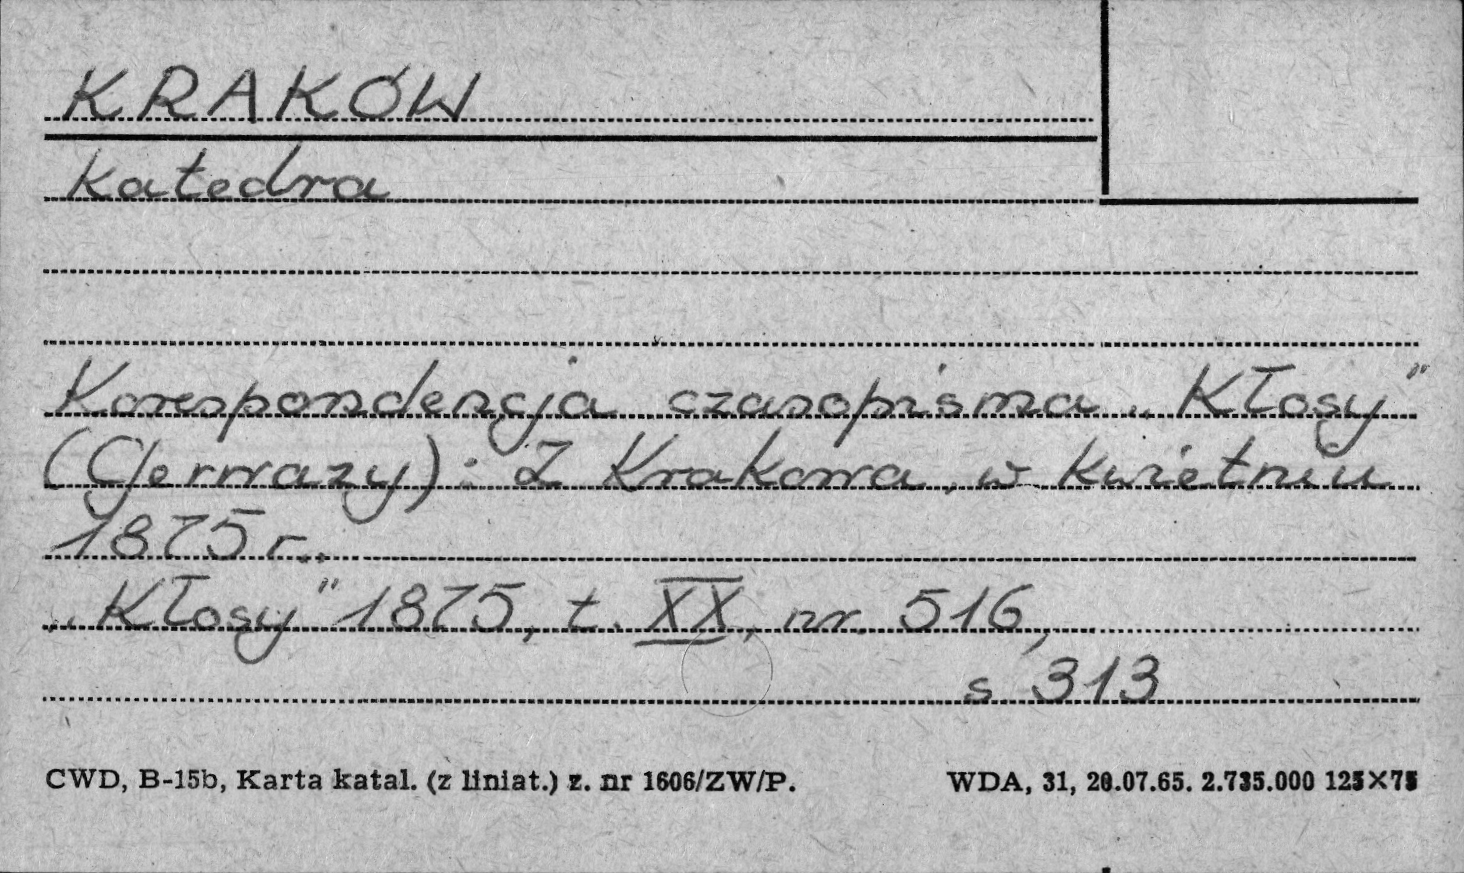 KRAKÓW
Katedra
Korespondencja czasopisma „Kłosy"
(Gerwazy): Z Krakowa, w kwietniu
1875 r..
„Kłosy" 1875, t. XX, nr. 516,
s 313
CWD, B-15b, Karta katal. (z liniat.) z. nr 1606/ZW/P. WDA, 31, 20.07.65. 2.735.000 125×75